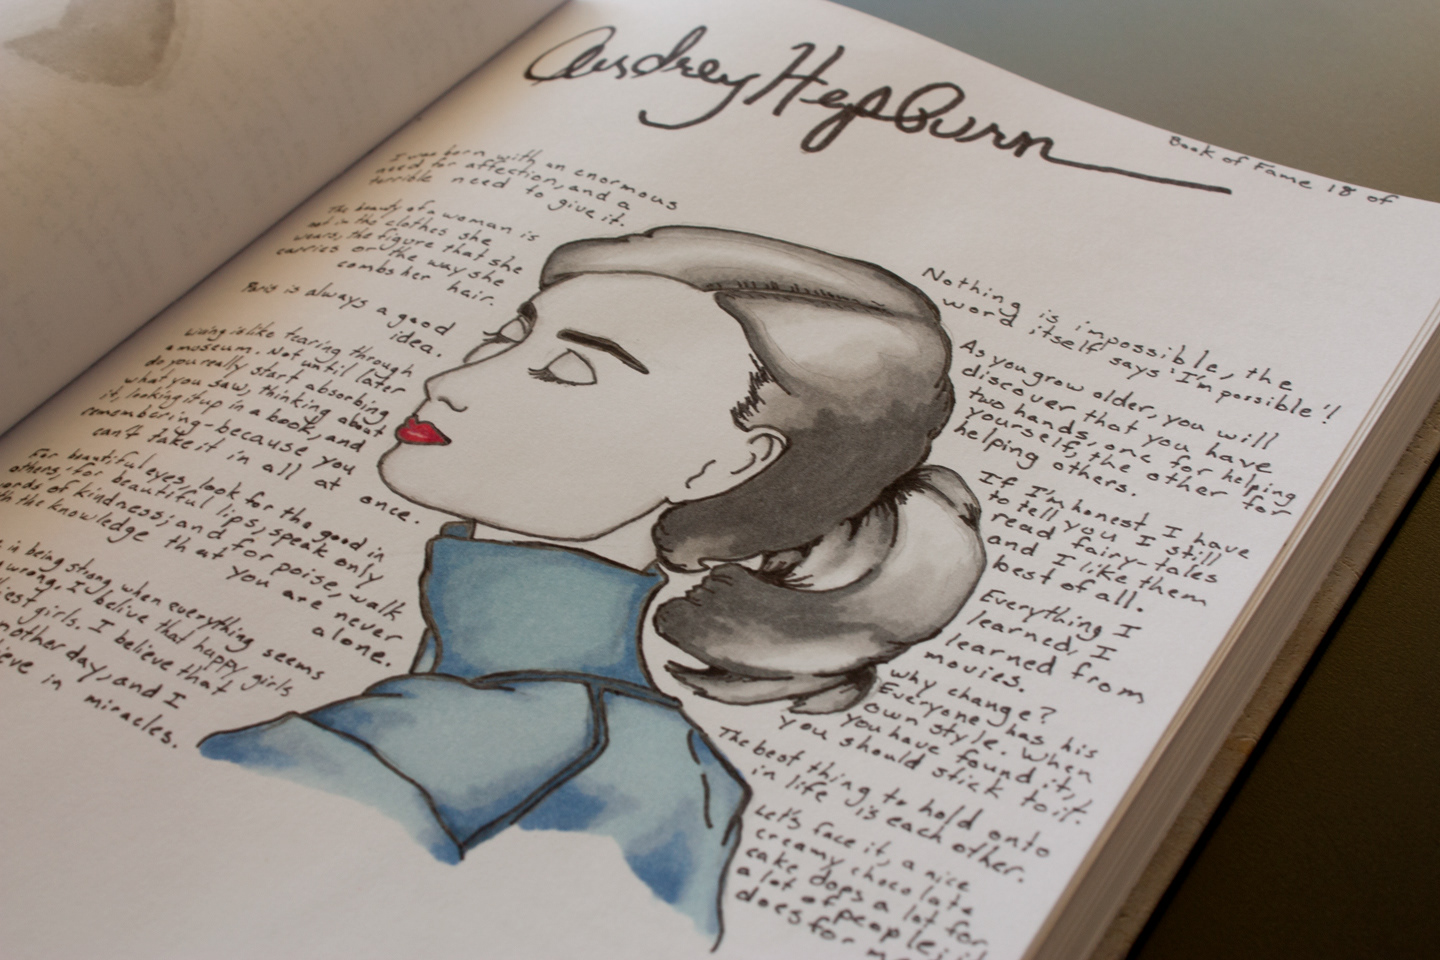 Audrey Hepburn
Book of Fame 18 of
I was born with an enormous
need for affection, and a
terrible need to give it.
The beauty of a woman is
not in the clothes she
wears, the figure that she
carries or the way she
combs her hair.
Paris is always a good
idea.
Living is like tearing through
a museum. Not until later
do you really start absorbing
what you saw, thinking about
it, looking it up in a book, and
remembering - because you
can't take it in all at once.
For beautiful eyes, look for the good in
others; for beautiful lips, speak only
words of kindness; and for poise, walk
with the knowledge that you are never
alone.
is being strong when everything seems
wrong. I belive that happy girls
girls. I believe that
another day, and I
in miracles.
Nothing is impossible, the
word itself says 'I'm possible'!
As you grow older, you will
discover that you have
two hands, one for helping
yourself, the other for
helping others.
If I'm honest I have
to tell you I still
read fairy-tales
and I like them
best of all.
Everything I
learned, I
learned from
movies.
why change?
Everyone has his
own style. When
you have found it,
you should stick to it.
The best thing to hold onto
in life is each other.
Let's face it, a nice
creamy chocolate
cake dops a lot for
a lot of people; it
does for me